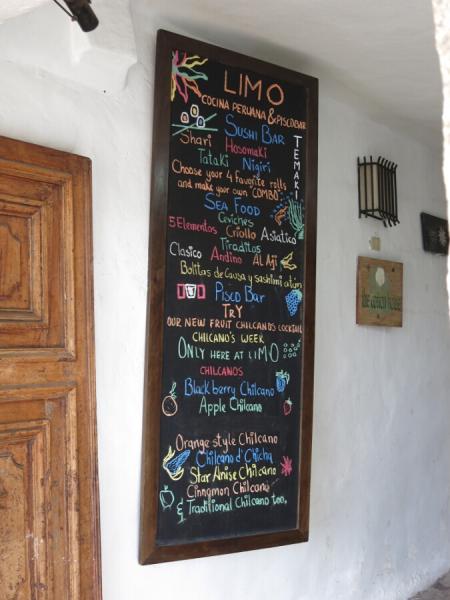 LIMO
COCINA PERUANA & PISCOBAR
SUSHI BAR
Shari Hosomaki
Tataki Nigiri
TEMAKI
Choose your 4 favorite rolls
and make your own COMBO
SEA FOOD
Ceviches
5 Elementos Criollo Asiatico
Tiraditos
Clasico Andino AL Aji
Bolitas de Causa y sashimi atún
PISCO BAR
TRY
OUR NEW FRUIT CHILCANOS COCKTAIL
CHILCANO'S WEEK
ONLY HERE AT LIMO
CHILCANOS
Blackberry Chilcano
Apple Chilcano
Orange style Chilcano
Chilcano d' Chicha
Star Anise Chilcano
Cinnamon Chilcano
& Traditional Chilcano too.